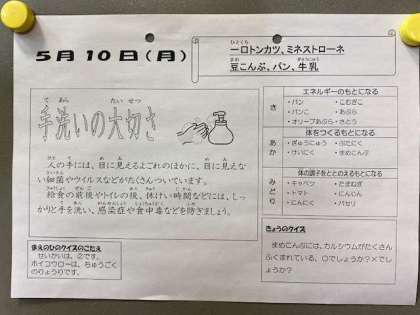 5月10日(月)
一口トンカツ、ミネストローネ
豆こんぶ、パン、牛乳
手洗いの大切さ
人の手には、目に見えるよごれのほかに、目に見えな
い細菌やウイルスなどがたくさんついています。
給食の前後やトイレの後、休けい時間などには、しっ
かりと手を洗い、感染症や食中毒などを防ぎましょう。
まえのひのクイズのこたえ
せいかいは、②です。
ホイコウローは、ちゅうごく
のりょうりです。
エネルギーのもとになる
き
・パン ・こむぎこ
・パンこ ・あぶら
・オリーブあぶら ・さとう
体をつくるもとになる
あか
・ぎゅうにゅう ・ぶたにく
・けいにく ・まめこんぶ
体の調子をととのえるもとになる
みどり
・キャベツ ・たまねぎ
・トマト ・にんじん
・にんにく ・パセリ
きょうのクイズ
まめこんぶには、カルシウムがたくさん
ふくまれている、〇でしょうか？×でし
ょうか？